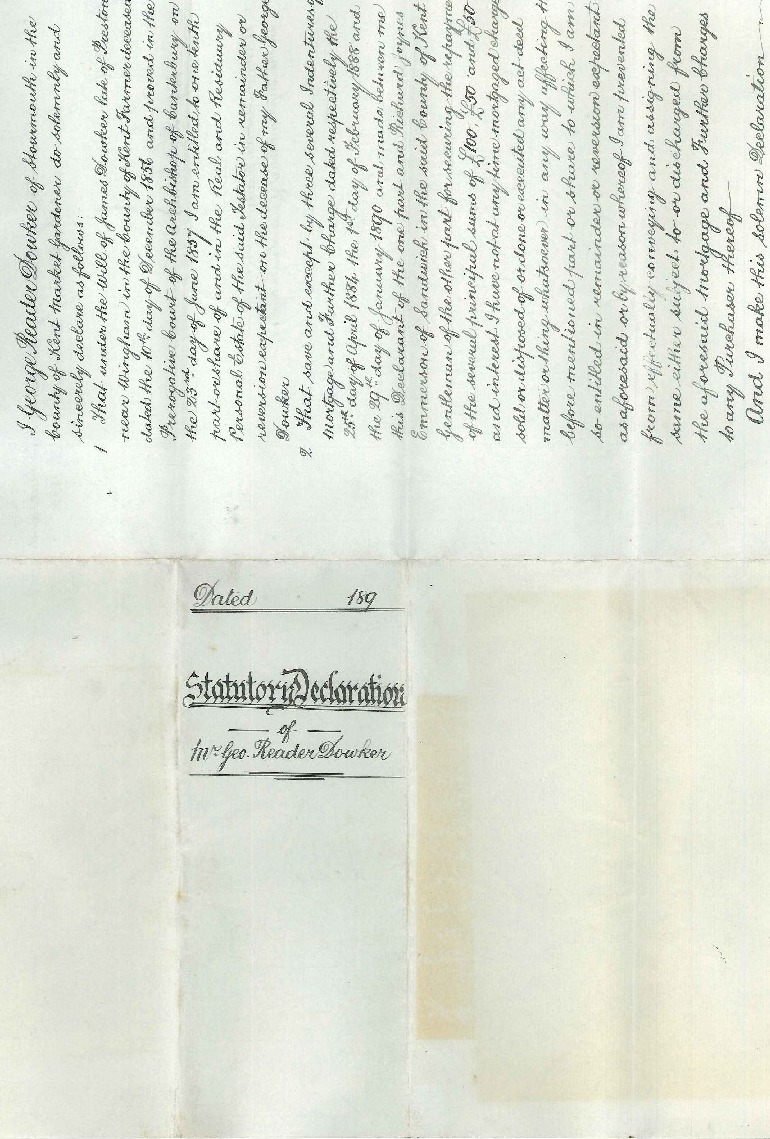 I George Reader Dowker of Stourmouth in the
County of Kent Market Gardener do solemnly and
sincerely declare as follows:
1 That under the Will of James Dowker late of Preston
near Wingham in the County of Kent Farmer deceased
dated the 10th day of December 1836 and proved in the
Prerogative Court of the Archbishop of Canterbury on
the 23rd day of June 1837 I am entitled to one tenth
part or share of and in the Real and Residuary
Personal Estate of the said Testator in remainder or
reversion expectant on the decease of my Father George
Dowker
2 That save and except by three several Indentures of
Mortgage and Further Charge dated respectively the
25th day of April 1884 the 1st day of February 1888 and
the 29th day of January 1890 and made between me
this Declarant of the one part and Richard Joynes
Emmerson of Sandwich in the said County of Kent
Gentleman of the other part for securing the repayme
of the several principal sums of £100. £50 and £50
and interest I have not at any time mortgaged charge
sold or disposed of or done or executed any act deed
matter or thing whatsoever in any way affecting th
before mentioned part or share to which I am
so entitled in remainder or reversion expectant
as aforesaid or by reason whereof I am prevented
from effectually conveying and assigning the
same either subject to or discharged from
the aforesaid Mortgage and Further Charges
to any Purchaser thereof
And I make this solemn Declaration
Dated 189
Statutory Declaration
of
Mr Geo. Reader Dowker